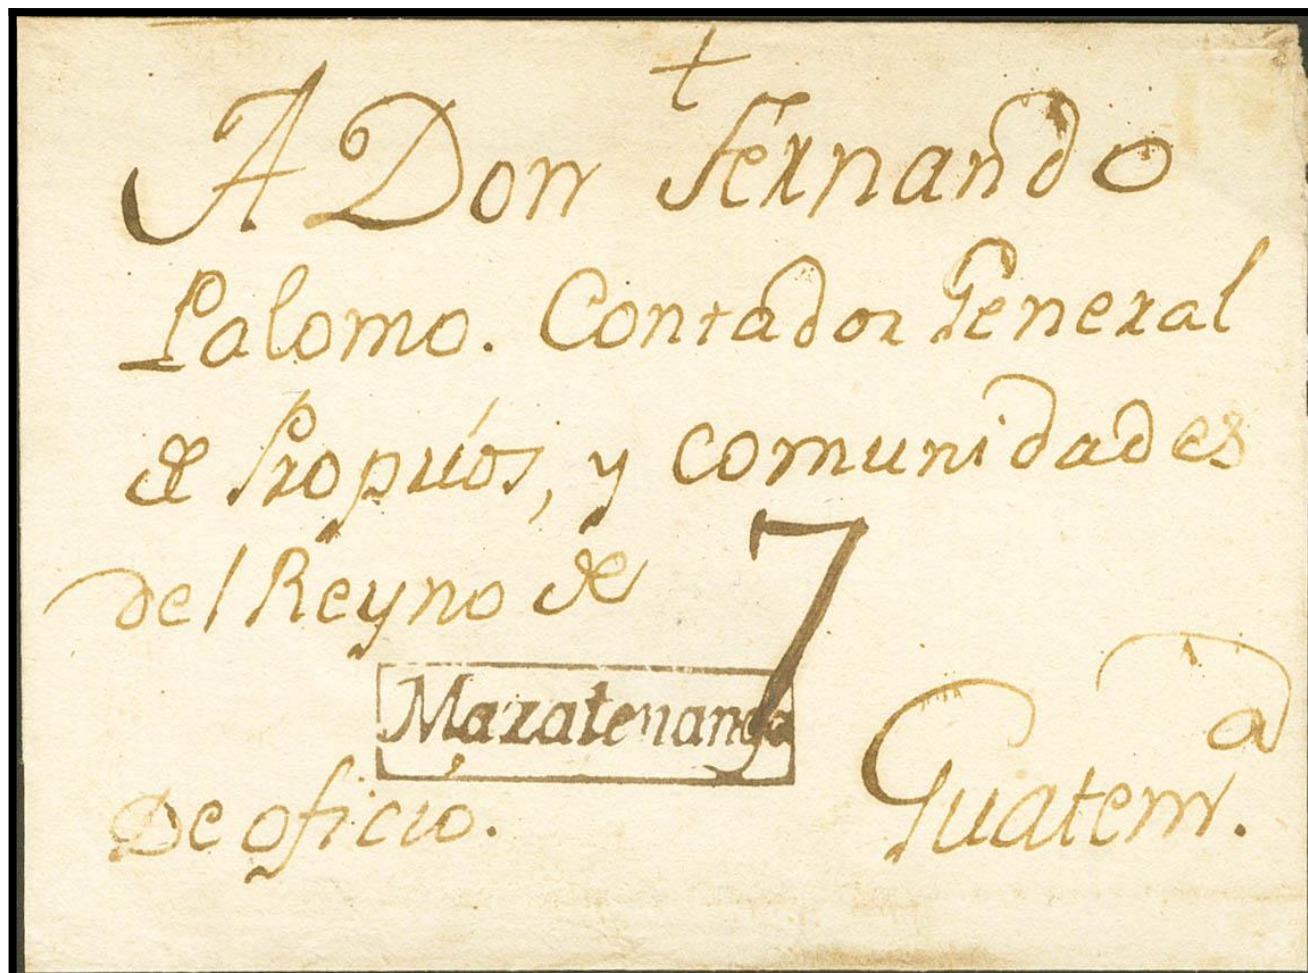 †
A Don Fernando
Palomo. Contador General
de Propiós, y comunidades
del Reyno de
7
Mazatenango
De ofició.
Guatem.ª